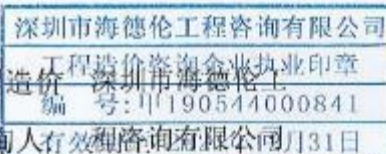 深圳市海德伦工程咨询有限公司
工程造价咨询企业执业印章
造价 深圳市海德伦工
编 号:甲190544000841
人有效 咨询有限公司月31日